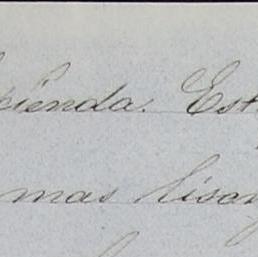 pienda. Est
mas lison